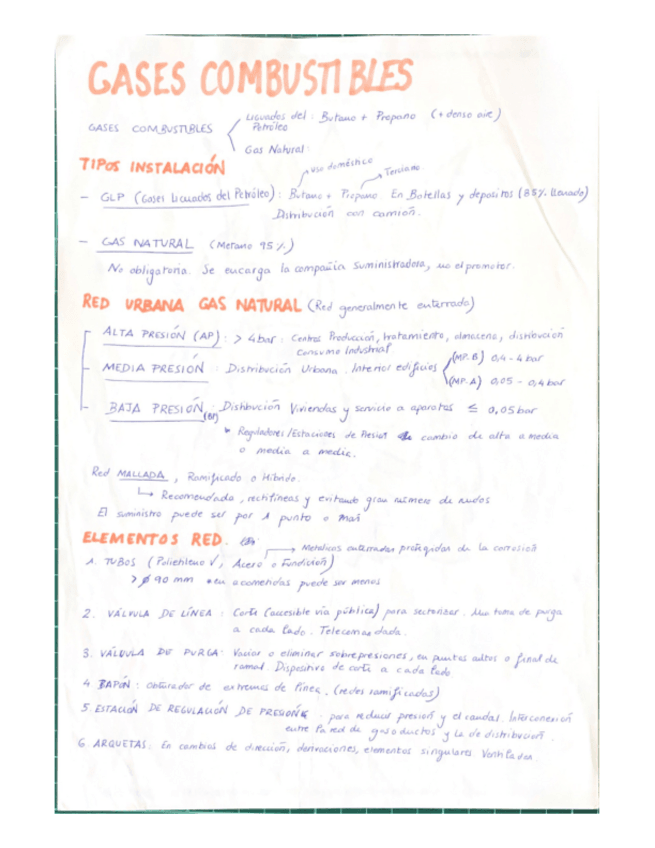 GASES COMBUSTIBLES
Licuados del : Butano + Propano (+ denso aire)
GASES COMBUSTIBLES Petróleo
Gas Natural:
TIPOS INSTALACIÓN
uso doméstico Terciario
- GLP (Gases Licuados del Petróleo) : Butano + Propano. En Botellas y depositos (85% llenado)
Distribución con camión.
- GAS NATURAL (Metano 95%)
No obligatoria. Se encarga la compañía suministradora, no el promotor.
RED URBANA GAS NATURAL (Red generalmente enterrada)
ALTA PRESIÓN (AP) : > 4bar : Centros Producción, tratamiento, almacena, distribución
Consumo Industrial
MEDIA PRESIÓN : Distribución Urbana. Interior edificios (MP.B) 0,4 - 4 bar
(MP.A) 0,05 - 0,4 bar
BAJA PRESIÓN (BP) : Distribución Viviendas y servicio a aparatos ≤ 0,05 bar
Reguladores/Estaciones de Presion cambio de alta a media
o media a media.
Red MALLADA, Ramificado o Híbrido.
↳ Recomendada, rectilíneas y evitando gran número de nudos
El suministro puede ser por 1 punto o mas
ELEMENTOS RED.
→ Metálicos enterrados protegidos de la corrosión
1. TUBOS (Polietileno √, Acero o Fundición)
> ϕ 90 mm * en acometidas puede ser menos
2. VÁLVULA DE LÍNEA : Corte (accesible vía pública) para sectorizar. Una toma de purga
a cada lado. Telecomandada.
3. VÁLVULA DE PURGA: Vaciar o eliminar sobrepresiones, en puntos altos o final de
ramal. Dispositivo de corte a cada lado
4 TAPÓN : obturador de extremos de línea. (redes ramificadas)
5. ESTACIÓN DE REGULACIÓN DE PRESIÓN : para reducir presión y el caudal. Interconexión
entre la red de gasoductos y la de distribución.
6. ARQUETAS: En cambios de dirección, derivaciones, elementos singulares. Ventiladas.